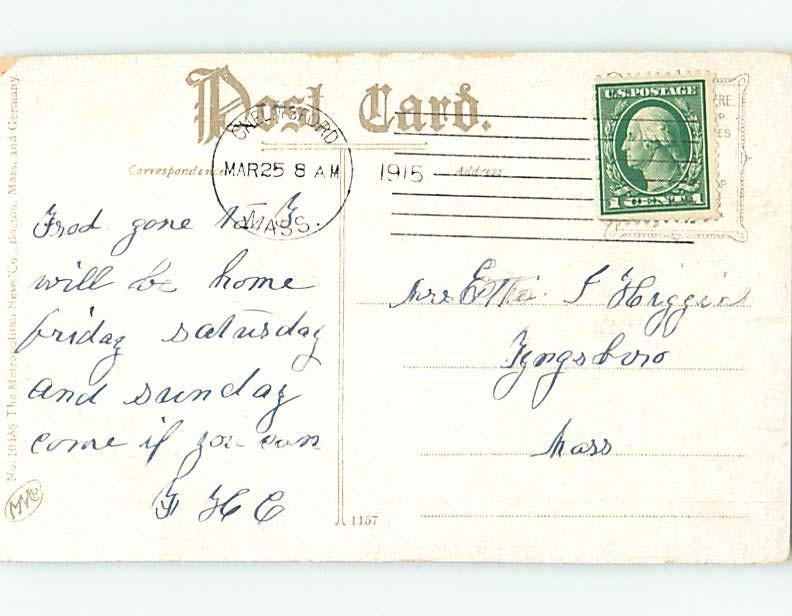 Post Card.
CHELMSFORD
MAR 25 8 AM 1915
MASS.
U.S. POSTAGE
1 CENT 1
Correspondence
Address
gone to
will be home
friday saturday
and sunday
come if you can
F H C
Mrs Etta F Higgins
Tyngsboro
Mass
No. 10186 The Metropolitan News Co., Boston, Mass. and Germany.
MNCo
1157